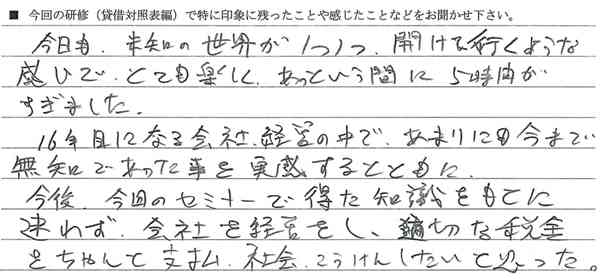 ■ 今回の研修（貸借対照表編）で特に印象に残ったことや感じたことなどをお聞かせ下さい。
今日も、未知の世界が1つ1つ、開けて行くような
感じで、とても楽しく、あっという間に5時間が
すぎました。
16年目になる会社経営の中で、あまりにも今まで
無知であった事を実感するとともに、
今後、今回のセミナーで得た知識をもとに
迷わず、会社を経営をし、適切な税金
をちゃんと支払い、社会こうけんしたいと思った。